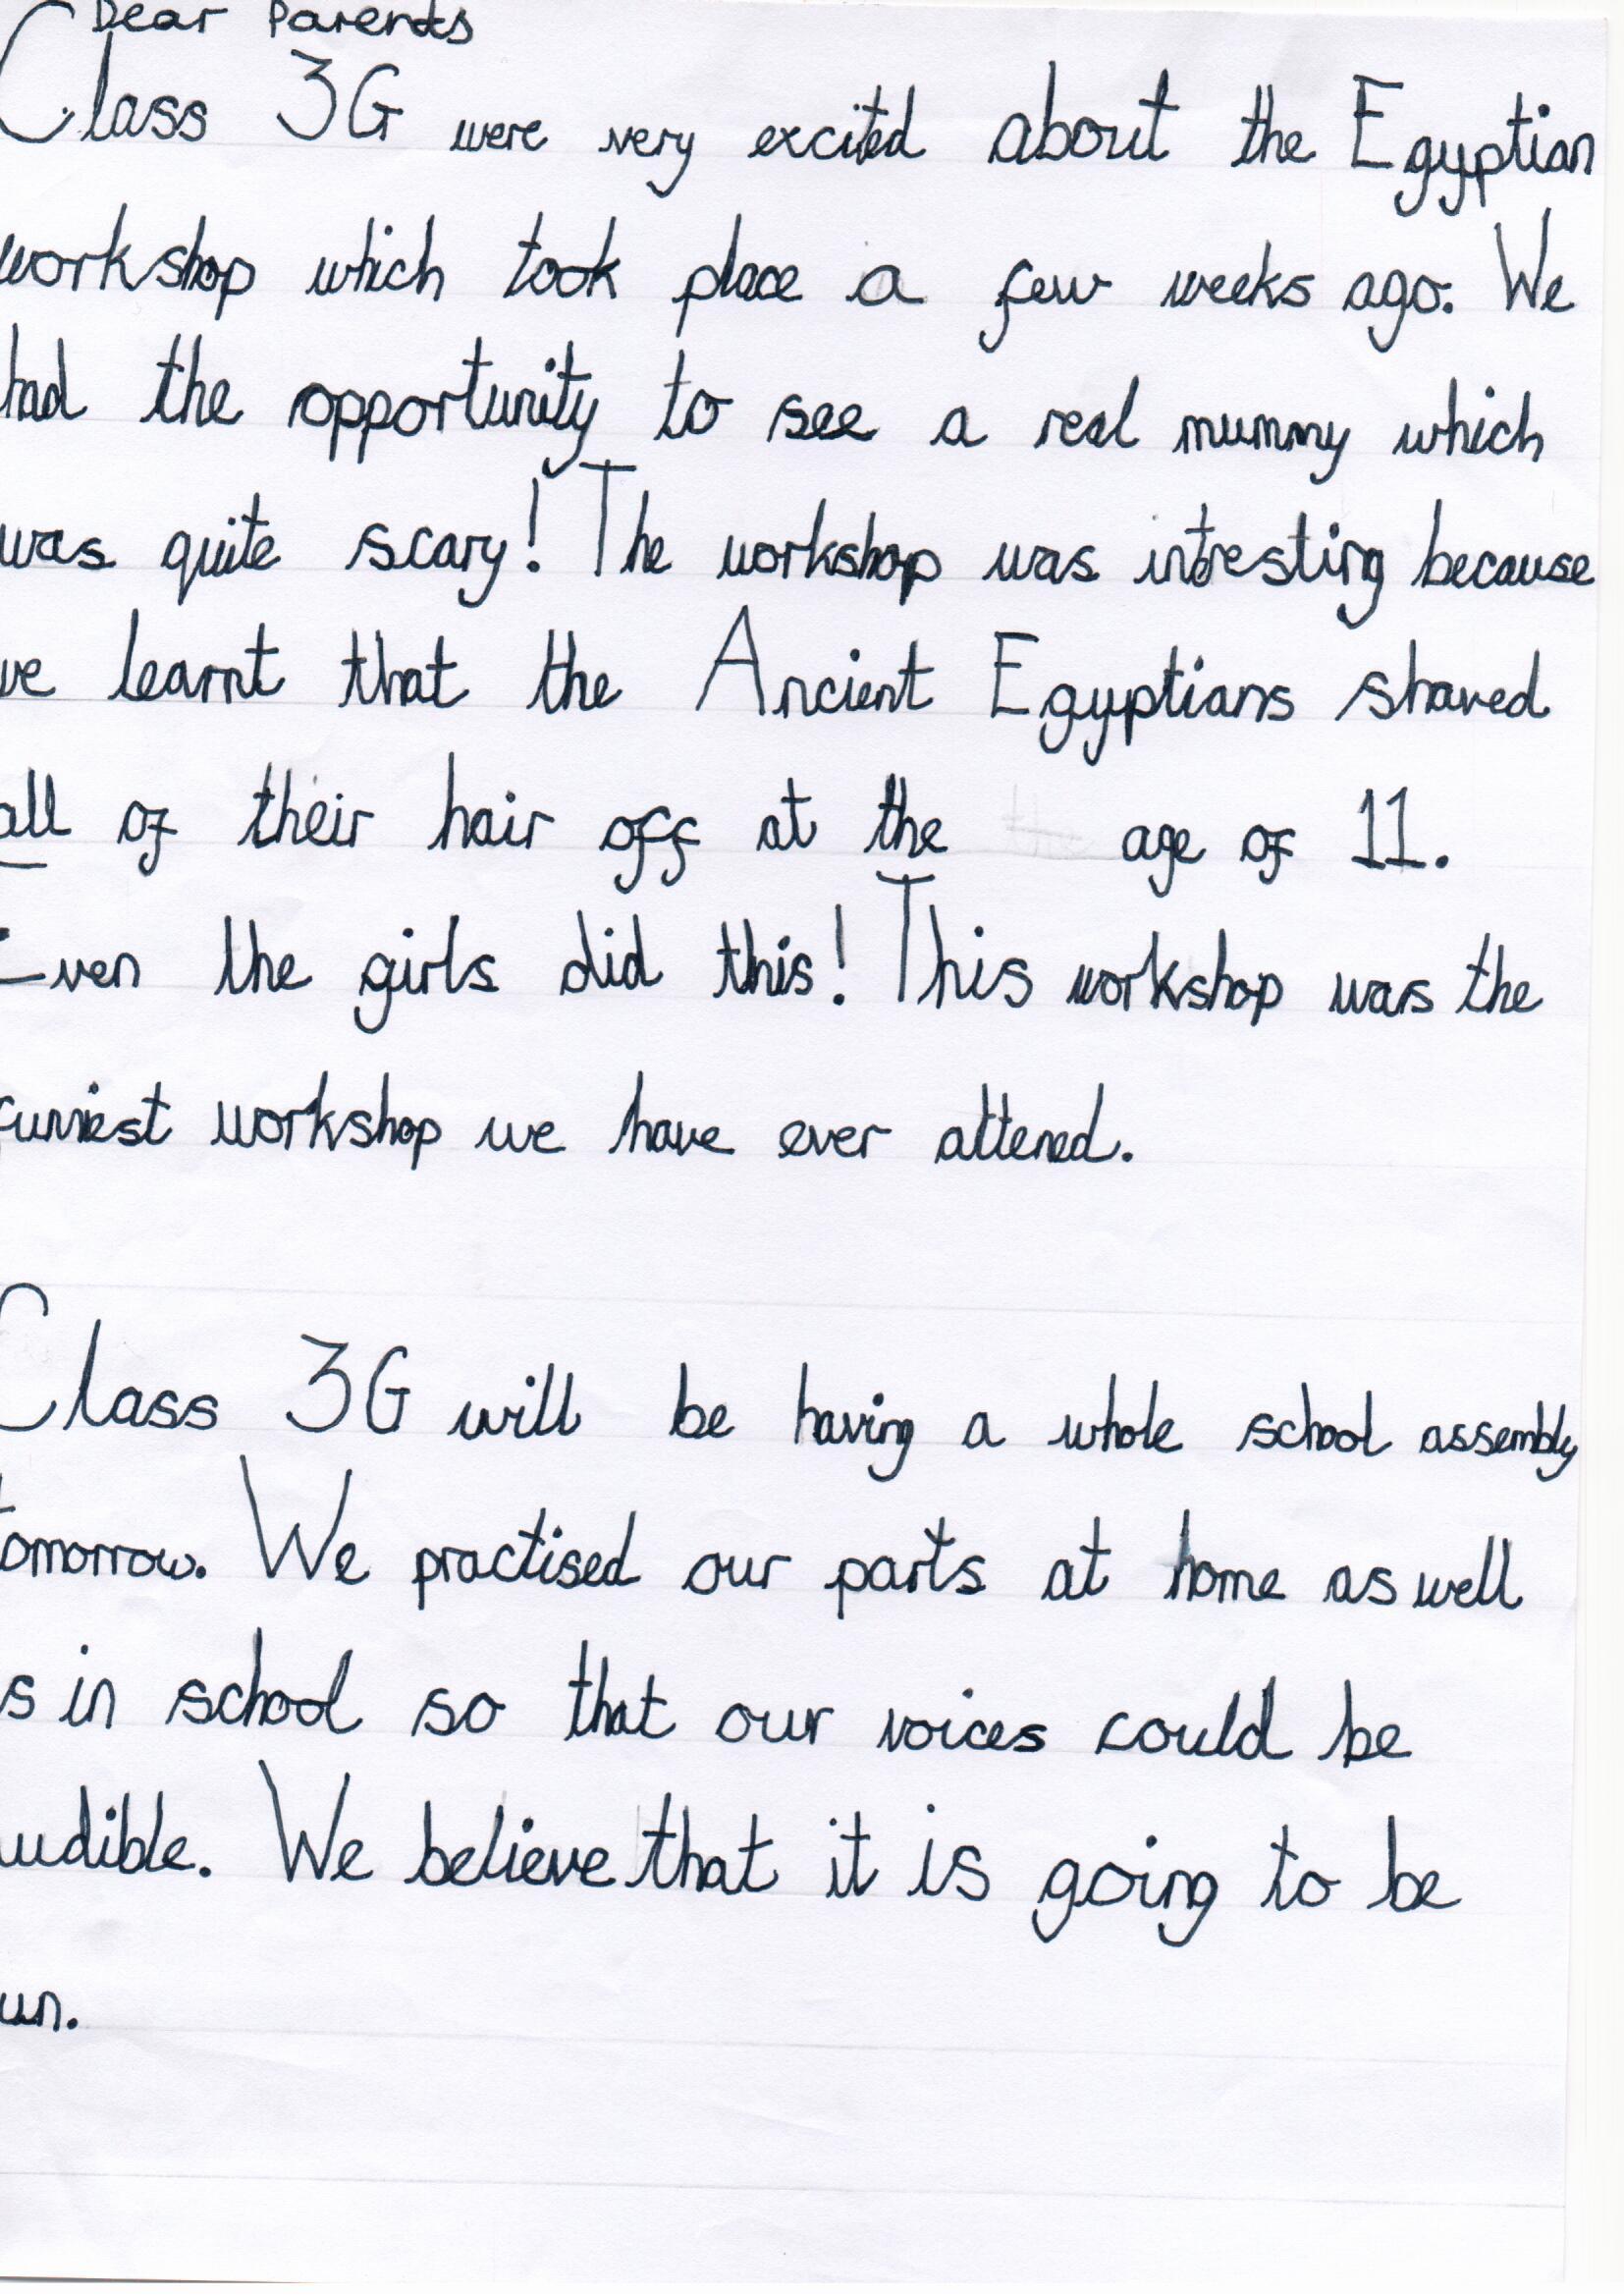 Dear Parents
Class 3G were very excited about the Egyptian
workshop which took place a few weeks ago. We
had the opportunity to see a real mummy which
was quite scary! The workshop was intresting because
we learnt that the Ancient Egyptians shaved
all of their hair off at the age of 11.
Even the girls did this! This workshop was the
funniest workshop we have ever attened.
Class 3G will be having a whole school assembly
tomorrow. We practised our parts at home as well
s in school so that our voices could be
udible. We believe that it is going to be
un.